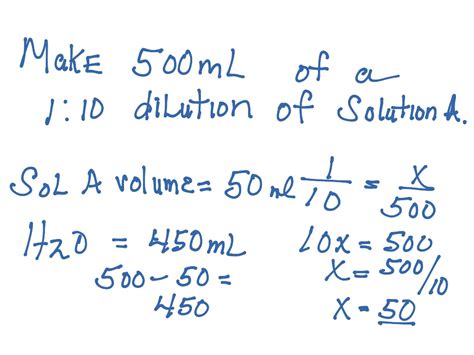 Make 500mL of a
1:10 dilution of Solution A.
Sol A volume = 50ml 1/10 = x/500
H2O = 450mL 10x = 500
500 - 50 = x = 500/10
450 x = 50